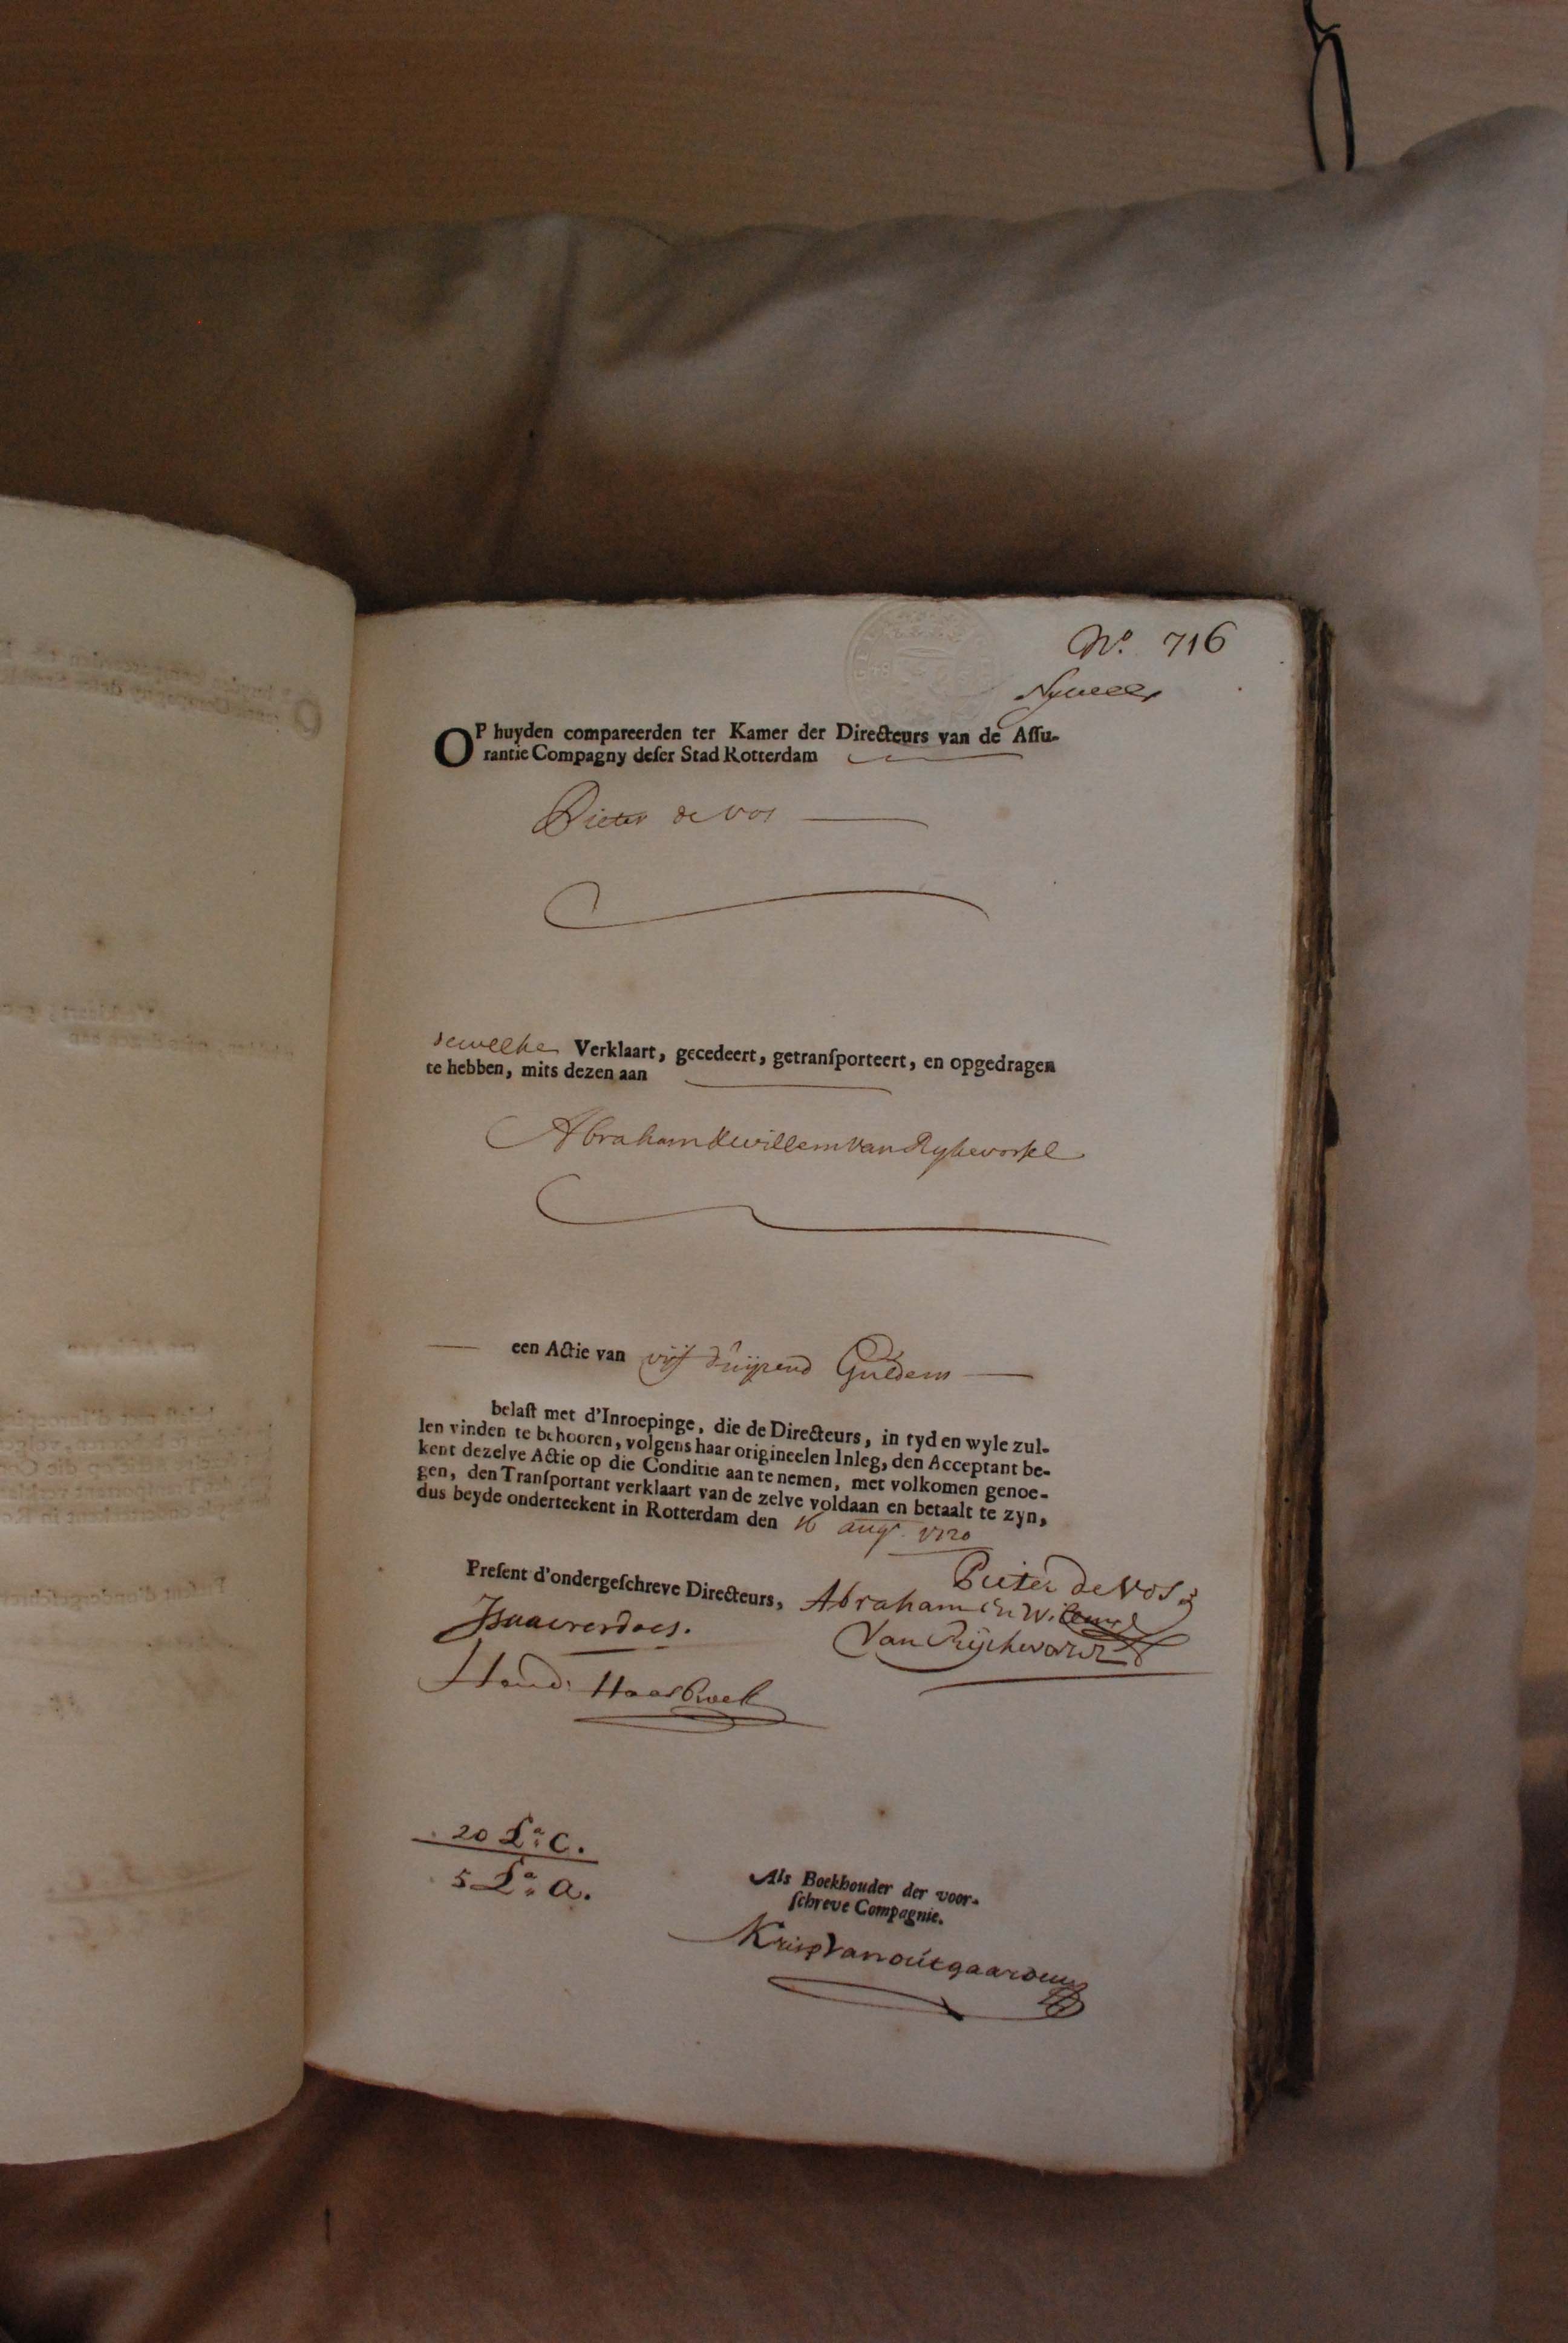 No. 716
OP huyden compareerden ter Kamer der Directeurs van de Aſſu-
rantie Compagny deſer Stad Rotterdam
Pieter de vos
dewelke Verklaart, gecedeert, getranſporteert, en opgedragen
te hebben, mits dezen aan
Abraham & willem van Rykevorsel
een Actie van vijf duijzend Guldens
belaſt met d'Inroepinge, die de Directeurs, in tyd en wyle zul-
len vinden te behooren, volgens haar origineelen Inleg, den Acceptant be-
kent dezelve Actie op die Conditie aan te nemen, met volkomen genoe-
gen, den Tranſportant verklaart van de zelve voldaan en betaalt te zyn,
dus beyde onderteekent in Rotterdam den 16 augs. 1720
Pieter de Vos
Preſent d'ondergeſchreve Directeurs, Abraham en Willem
Isaac verdoes. Van Rijckevorsel
Hend:
20 La: C.
5 La: a.
Als Boekhouder der voor-
ſchreve Compagnie.
Krisp Vanoutgaarden